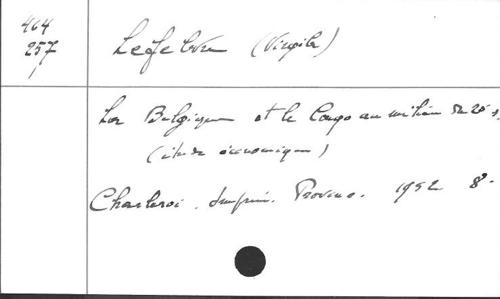 464
257
Lefebvre (Virgile)
La Belgique et le Congo au milieu du 20e s.
(étude économique)
Charleroi. Imprim. Provinc. 1952 8°.